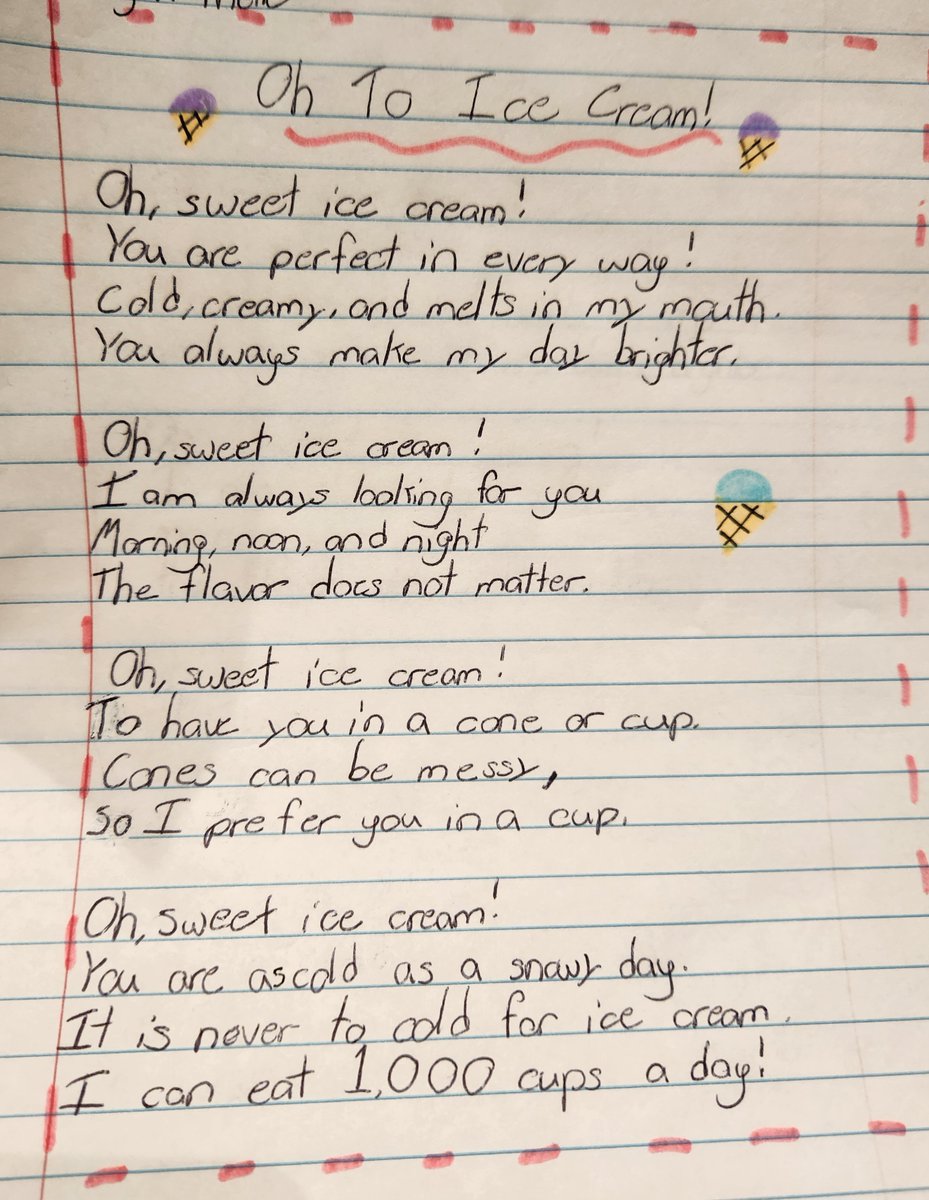 Oh To Ice Cream!
Oh, sweet ice cream!
You are perfect in every way!
Cold, creamy, and melts in my mouth.
You always make my day brighter.
Oh, sweet ice cream!
I am always looking for you
Morning, noon, and night
The flavor does not matter.
Oh, sweet ice cream!
To have you in a cone or cup.
Cones can be messy,
So I prefer you in a cup.
Oh, sweet ice cream!
You are as cold as a snowy day.
It is never to cold for ice cream.
I can eat 1,000 cups a day!